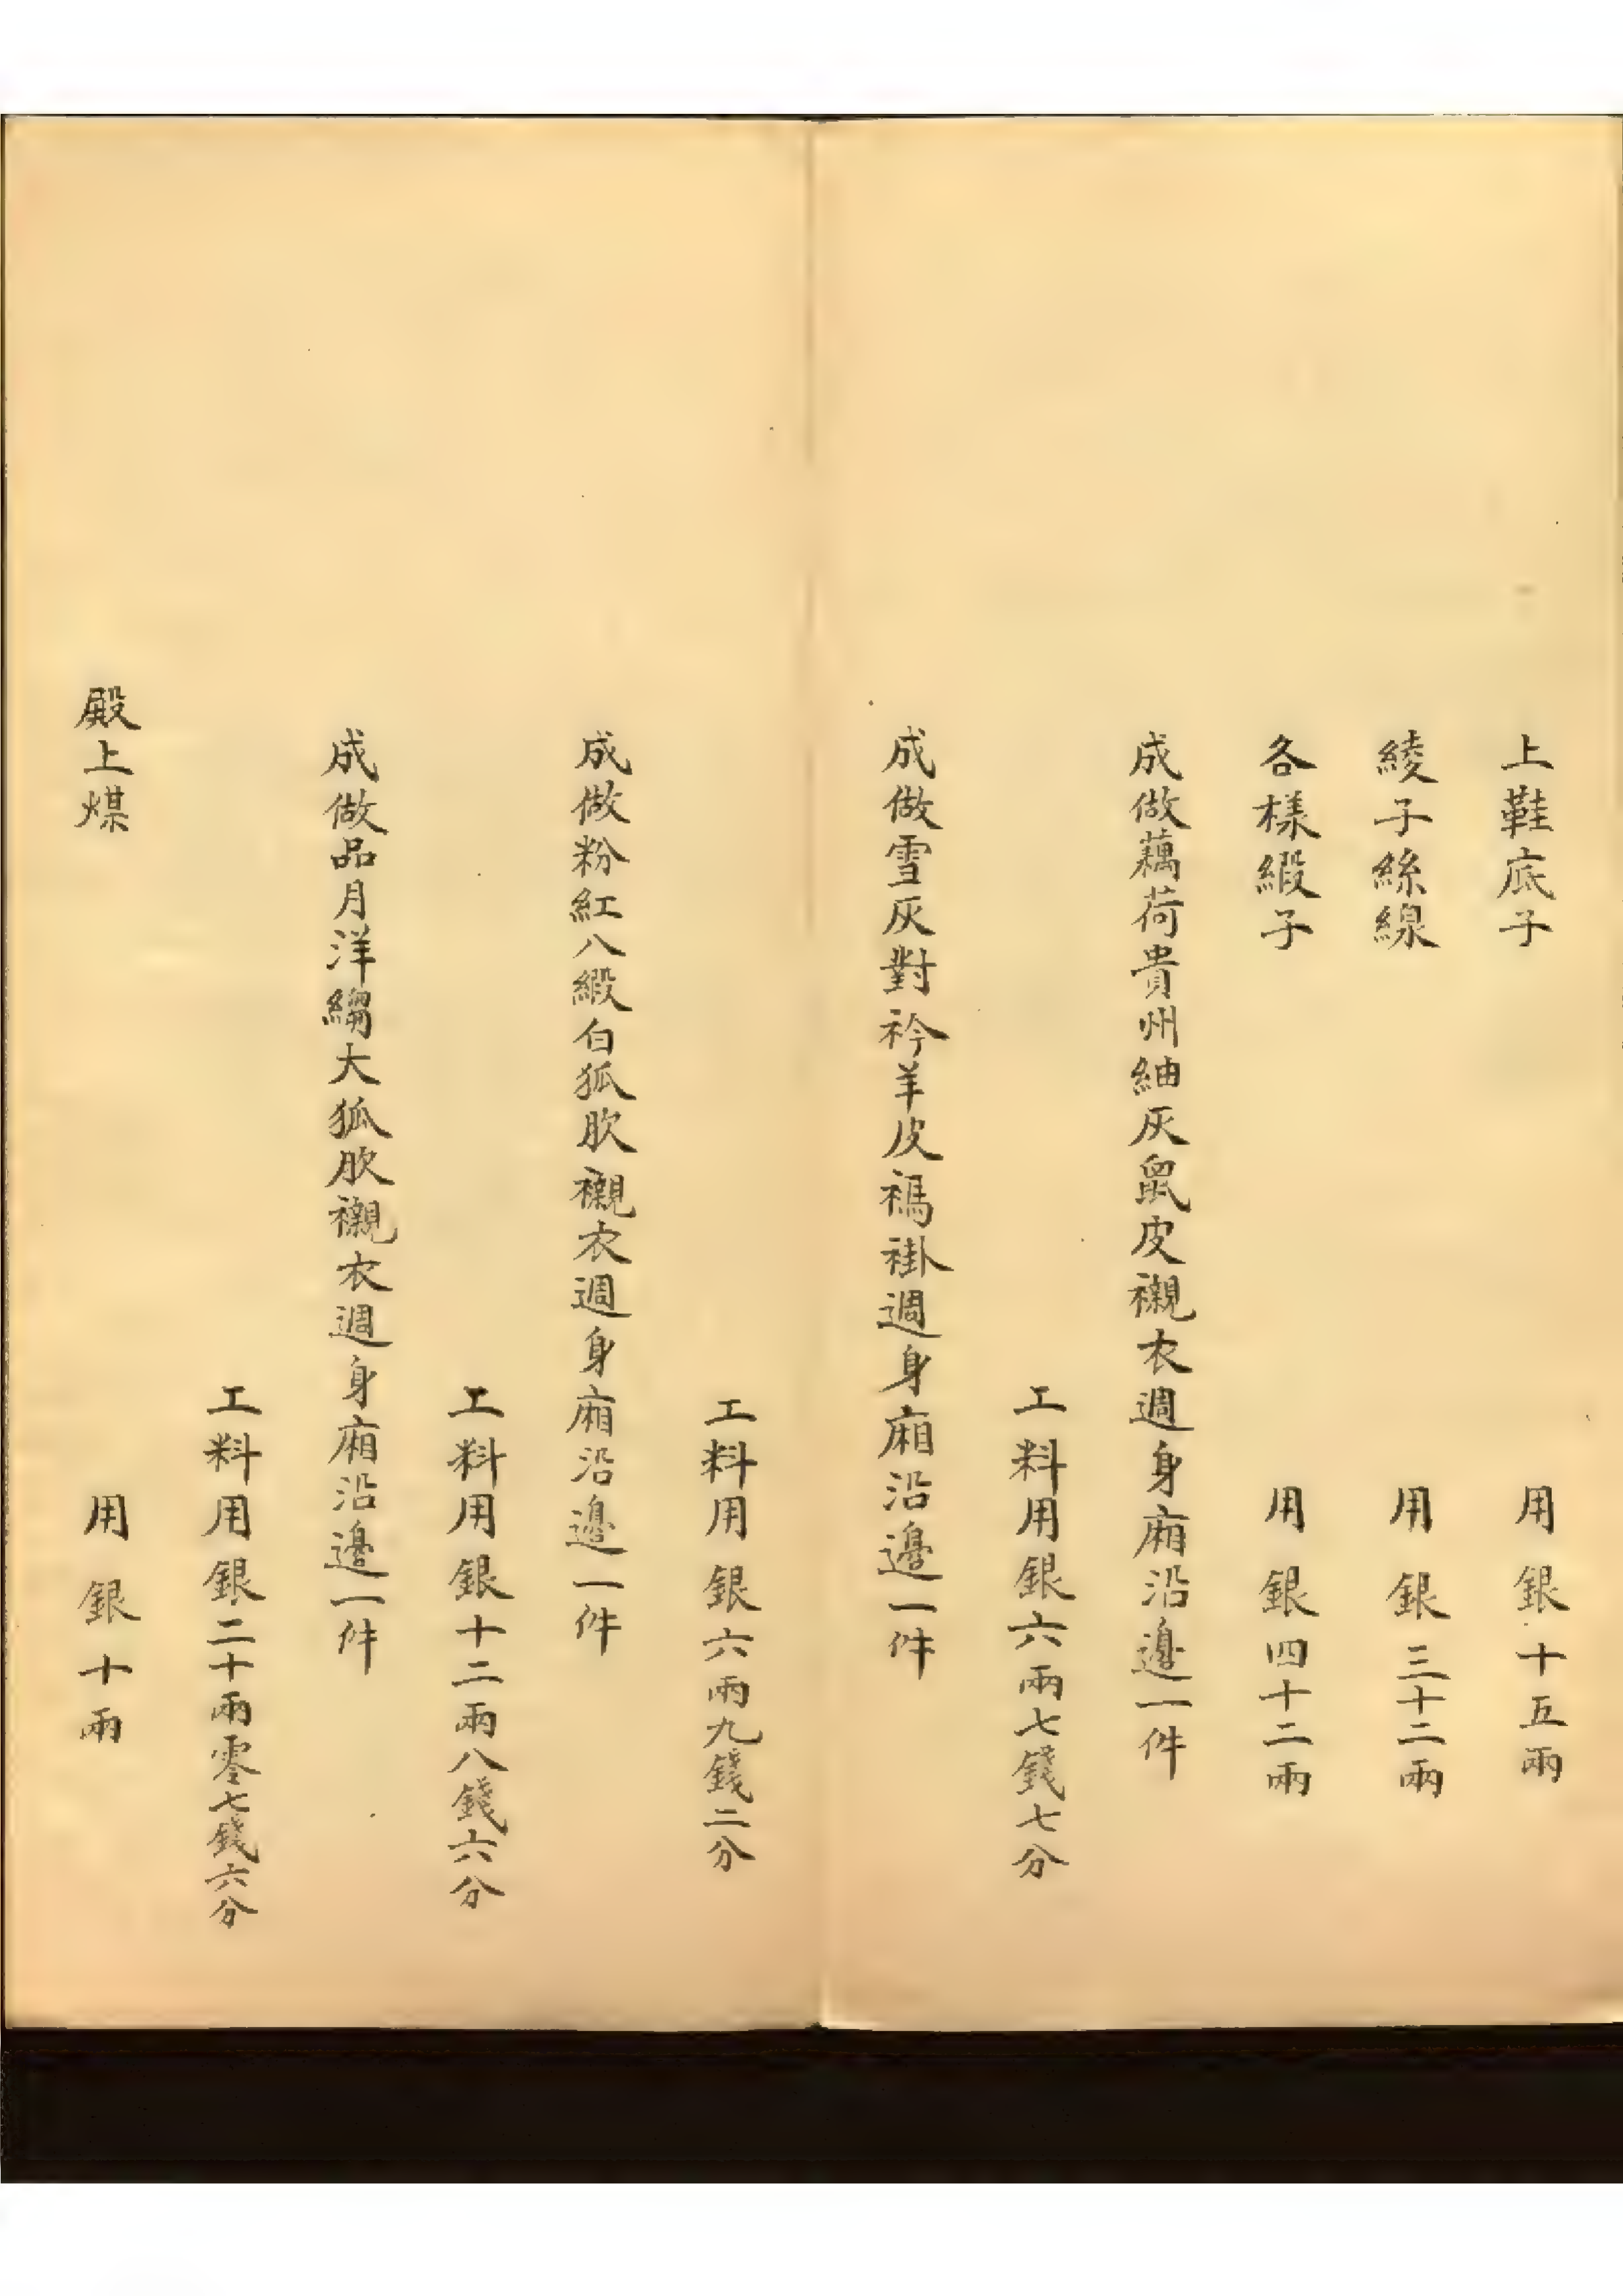 上鞋底子 用銀十五兩
綾子絲線 用銀三十二兩
各樣緞子 用銀四十二兩
成做藕荷貴州紬灰鼠皮襯衣週身廂沿邊一件
工料用銀六兩七錢七分
成做雪灰對衿羊皮褂週身廂沿邊一件
工料用銀六兩九錢二分
成做粉紅八緞白狐肷襯衣週身廂沿邊一件
工料用銀十二兩八錢六分
成做品月洋縐大狐肷襯衣週身廂沿邊一件
工料用銀二十兩零七錢六分
殿上煤 用銀十兩